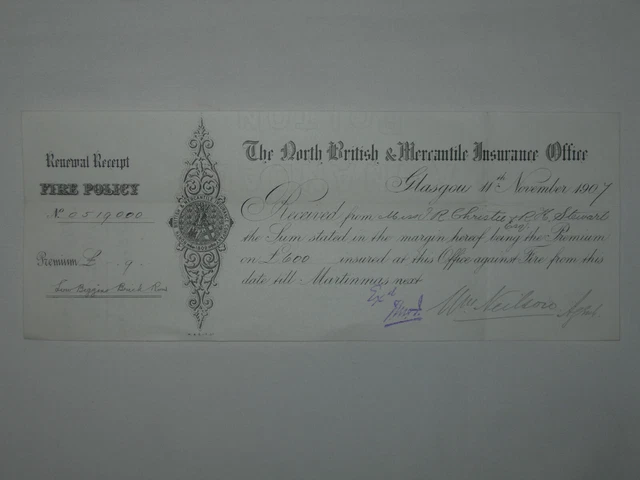 Renewal Receipt
FIRE POLICY
No. 0519000
Premium £ . 9 .
The North British & Mercantile Insurance Office
Glasgow 11th November 1907
Received from R. Christie & R. H. Stewart
the Sum stated in the margin hereof being the Premium
on £600 insured at this Office against Fire from this
date till Martinmas next
Exd
Wm Neilson Agent